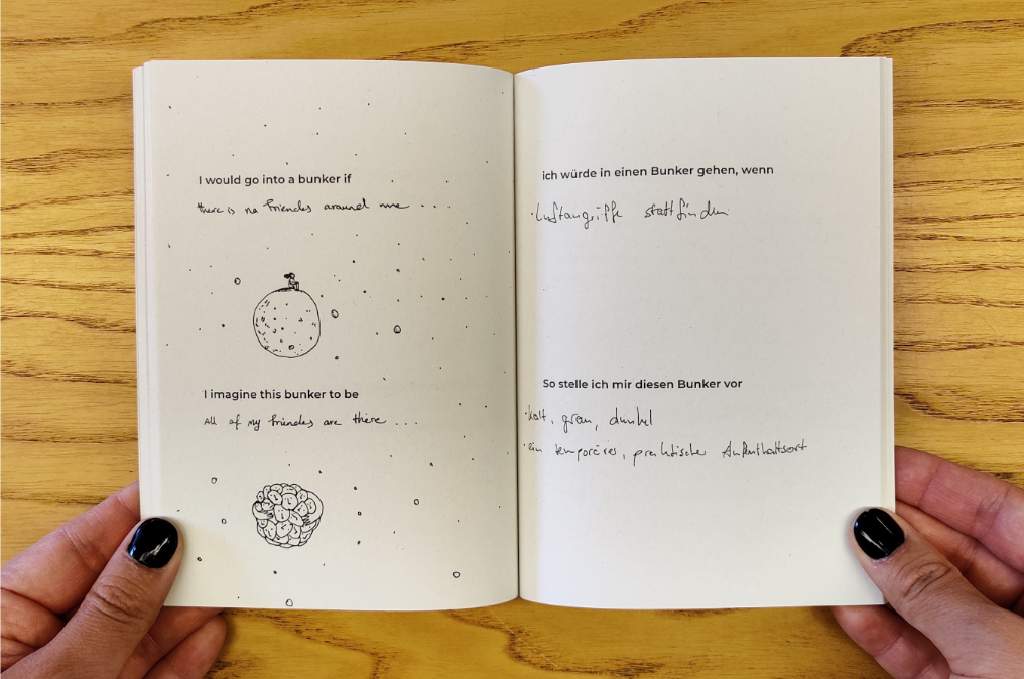 I would go into a bunker if
there is no friends around me ...
I imagine this bunker to be
All of my friends are there ...
ich würde in einen Bunker gehen, wenn
· Luftangriffe stattfinden
So stelle ich mir diesen Bunker vor
· kalt, grau, dunkel
· ein temporäres, praktischer Aufenthaltsort